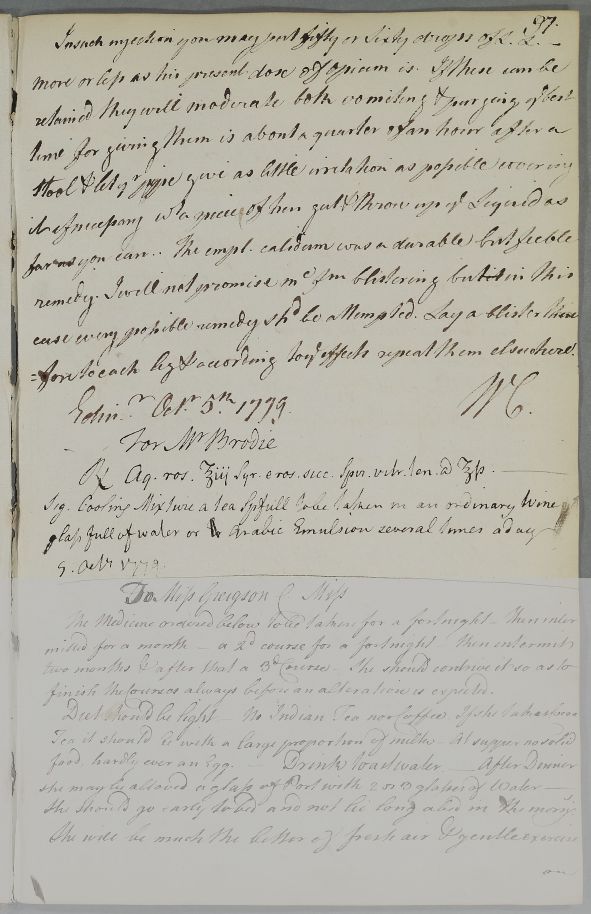 97.
In such injection you may put fifty or Sixty drops of L. L. —
more or less as his present dose of Opium is. If these can be
retained they will moderate both vomiting & purging yᵉ best
time for giving them is about a quarter of an hour after a
Stool & let yʳ pype give as little irritation as possible covering
it if necessary wᵗ a piece of hen gut & throw up yᵉ Liquid as
far as you can. The empl. calidum was a durable but feeble
remedy. I will not promise mᶜ from blistering but in this
case every possible remedy shᵈ be attempted. Lay a blister there
=fore to each leg & according to yᵉ effects repeat them elsewhere.
Edinʳ Octʳ 5ᵗʰ 1779. WC.
For Mʳ Brodie
℞ Aq. ros. ʒiij Syr. e ros. sicc. Spir. vitr. ten. a ʒſs. —
Sig. Cooling Mixture a tea Spfull to be taken in an ordinary Wine
glass full of water or Arabic Emulsion several times a day
5. Octr 1779.
To Miss Gregson C Miss
The Medicine ordered below to be taken for a fortnight — then inter
mitted for a month — a 2ᵈ course for a fortnight — then intermit
two months & after that a 3ᵈ Course — She should contrive it so as to
finish the courses always before an alteration is expected.
Diet should be light — No Indian Tea nor Coffee. If she takes
Tea it should be with a large proportion of milk — At supper no solid
food, hardly ever an Egg. — Drink toast water — After Dinner
she may be allowed a glass of Port with 2 or 3 glasses of Water —
She should go early to bed and not lie long abed in the morng.
She will be much the better of fresh air & gentle exercise
on